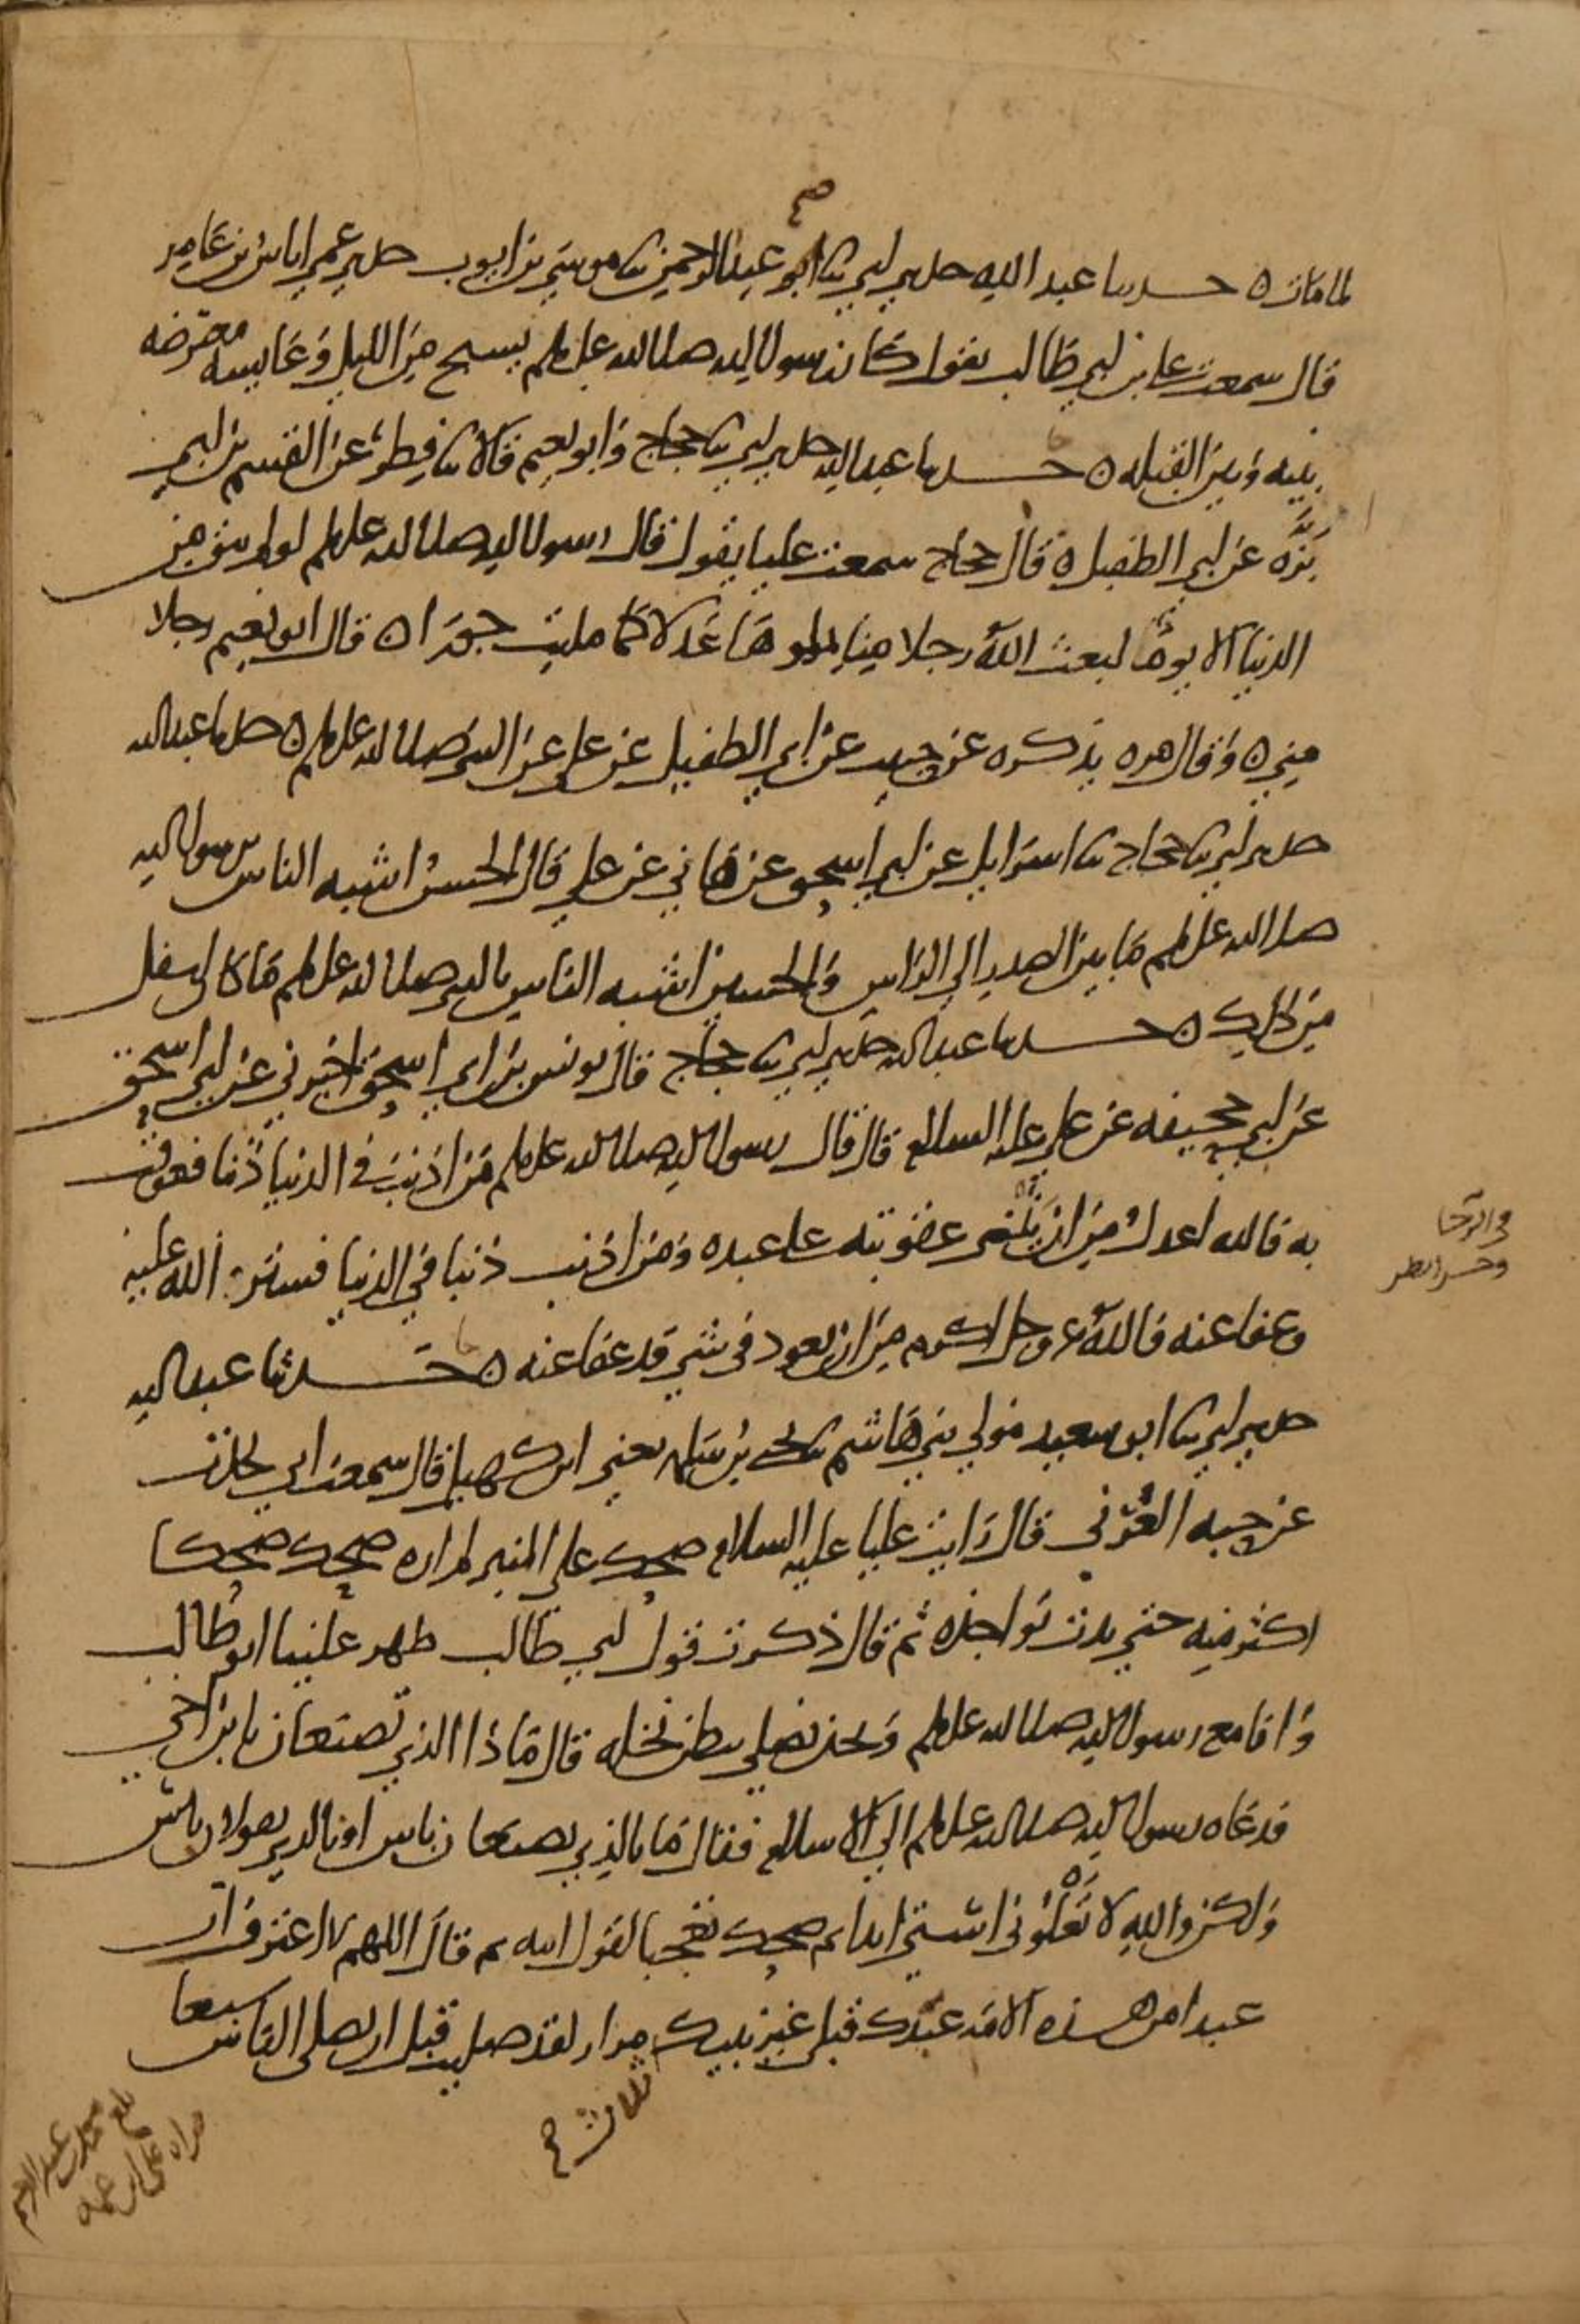 صح
لما مات ه حدثنا عبد الله حدثني ابي ثنا ابو عبد الرحمن ثنا موسي بن ايوب حدثني عمي اياس بن عامر
قال سمعت علي بن ابي طالب يقول كان رسول الله صلى الله عليه وسلم يسبح من الليل وعايشه معترضه
بينه وبين القبله ه حدثنا عبد الله حدثني ابي ثنا حجاج وابو نعيم قالا ثنا فطر عن القسم بن ابي
بزه عن ابي الطفيل ه قال حجاج سمعت عليا يقول قال رسول الله صلى الله عليه وسلم لو لم يبق من
الدنيا الا يوم لبعث الله رجلا منا يملوها عدلا كما مليت جورا ه قال ابو نعيم رجلا
مني ه وقال مره يذكره عن حبيب عن ابي الطفيل عن علي عن النبي صلى الله عليه وسلم ه حدثنا عبد الله
حدثني ابي ثنا حجاج ثنا اسرايل عن ابي اسحق عن هاني عن علي قال الحسن اشبه الناس برسول الله
صلى الله عليه وسلم ما بين الصدر الي الراس والحسين اشبه الناس بالنبي صلى الله عليه وسلم ما كان اسفل
من ذلك ه حدثنا عبد الله حدثني ابي ثنا حجاج قال يونس بن ابي اسحق اخبرني عن ابي اسحق
عن ابي جحيفه عن علي عليه السلام قال قال رسول الله صلى الله عليه وسلم من اذنب في الدنيا ذنبا فعوقب
به فالله اعدل من ان يثني عقوبته على عبده ومن اذنب ذنبا في الدنيا فستر الله عليه
وعفا عنه فالله عز وجل اكرم من ان يعود في شي قد عفا عنه ه حدثنا عبد الله
حدثني ابي ثنا ابو سعيد مولي بني هاشم ثنا يحيى بن سلمه يعني ابن كهيل قال سمعت ابي يحدث
عن حبه العرني قال رايت عليا عليه السلام ضحك على المنبر لم اره ضحك ضحكا
اكثر منه حتي بدت نواجذه ثم قال ذكرت قول ابي طالب ظهر علينا ابو طالب
وانا مع رسول الله صلى الله عليه وسلم ونحن نصلي ببطن نخله قال ماذا الذي تصنعان يا بن اخي
فدعاه رسول الله صلى الله عليه وسلم الي الاسلام فقال ما بالذي تصنعان باس او بالذي تقولان باس
ولكن والله لا تعلوني استي ابدا ثم ضحك تعجبا لقول ابيه ثم قال اللهم لا اعترف ان
عبدا من هذه الامه عبدك قبلي غير نبيك مرار لقد صليت قبل ان يصلي الناس سبعا
ثلاث صح